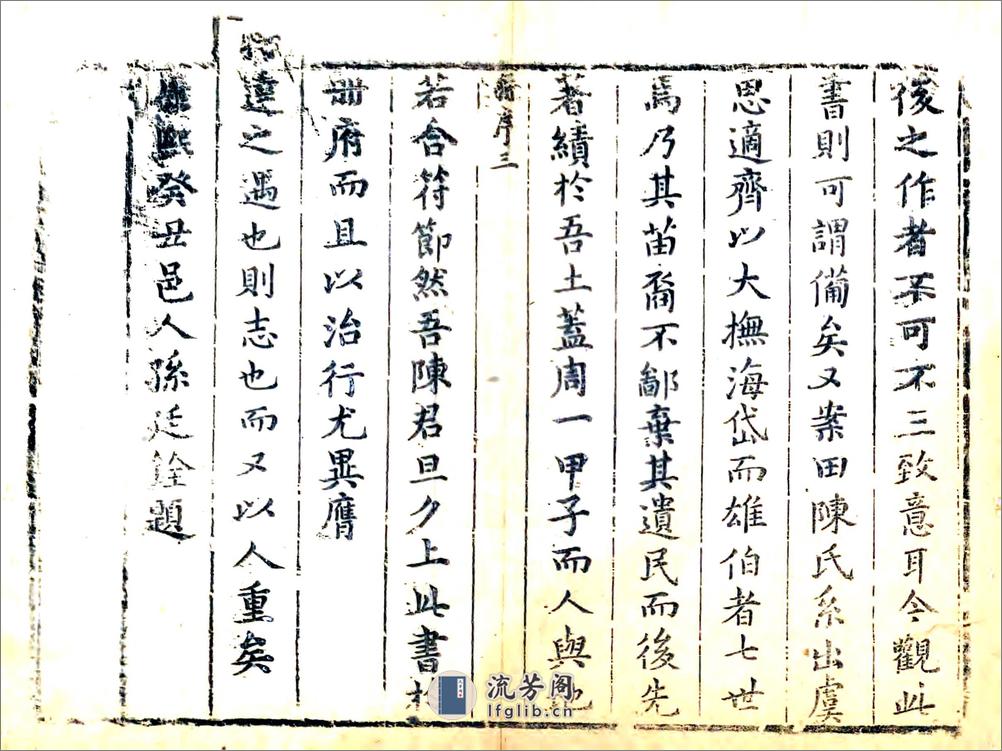 後之作者不可不三致意耳今觀此
書則可謂備矣又案田陳氏系出虞
思適齊以大撫海岱而雄伯者七世
焉乃其苗裔不鄙棄其遺民而後先
著績於吾土蓋周一甲子而人與
序三
若合符節然吾陳君旦夕上此書
冊府而且以治行尤異膺
達之遇也則志也而又以人重矣
康熙癸丑邑人孫廷銓題
流芳阁
lfglib.cn